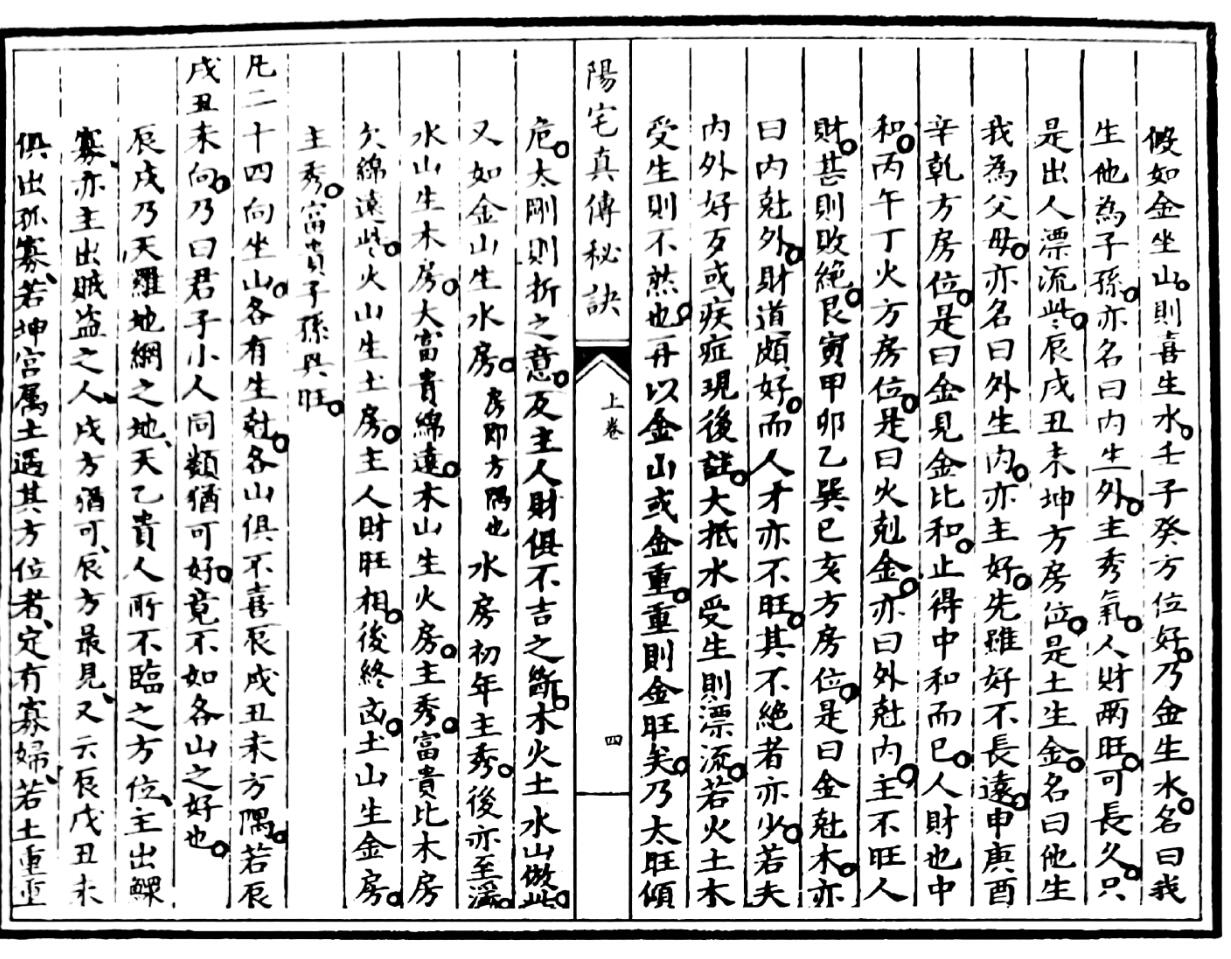 假如金坐山則喜生水壬子癸方位好乃金生水名曰我
生他為子孫亦名曰內生外主秀氣人財兩旺可長久只
是出人漂流些辰戌丑未坤方房位是土生金名曰他生
我為父母亦名曰外生內亦主好先雖好不長遠申庚酉
辛乾方房位是曰金見金比和止得中和而已人財也中
和丙午丁火方房位是曰火剋金亦曰外尅內主不旺人
財甚則敗絕艮寅甲卯乙巽巳亥方房位是曰金尅木亦
曰內尅外財道頗好而人才亦不旺其不絕者亦少若夫
內外好歹或疾症現後註大抵水受生則漂流若火土木
受生則不然也再以金山或金重重則金旺矣乃太旺傾
陽宅真傳秘訣
上卷
四
危太剛則折之意反主人財俱不吉之斷木火土水山倣此
又如金山生水房房即方隅也水房初年主秀後亦至
水山生木房大富貴綿遠木山生火房主秀富貴比木房
欠綿遠些火山生土房主人財旺相後終凶土山生金房
主秀富貴子孫興旺
凡二十四向坐山各有生尅各山俱不喜辰戌丑未方隅若辰
戌丑未向乃曰君子小人同類猶可好竟不如各山之好也
辰戌乃天羅地網之地天乙貴人所不臨之方位主出鰥
寡亦主出賊盜之人戌方猶可辰方最見又云辰戌丑未
俱出孤寡若坤宮属土遇其方位者定有寡婦若土重重